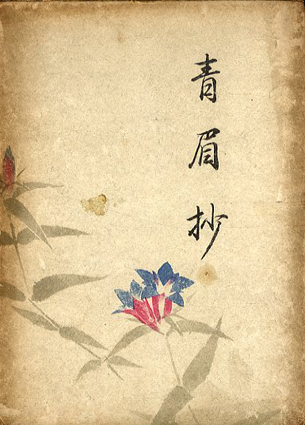 青眉抄